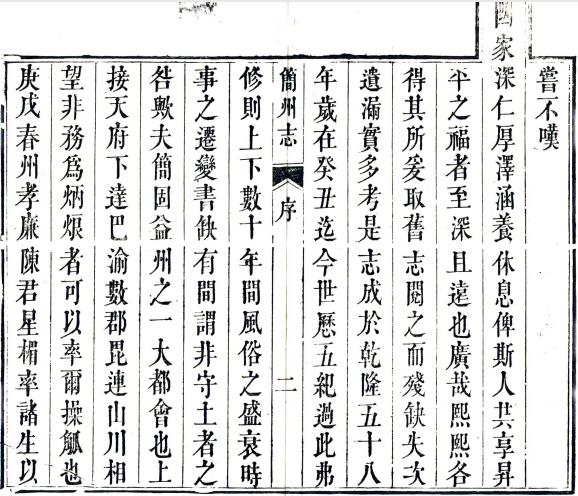 嘗不嘆
國家深仁厚澤涵養休息俾斯人共享昇
平之福者至深且遠也廣哉熙熙各
得其所爰取舊志閱之而殘缺失次
遺漏實多考是志成於乾隆五十八
年歲在癸丑迄今世歷五紀過此弗
簡州志 序 二
修則上下數十年間風俗之盛衰時
事之遷變書缺有間謂非守土者之
咎歟夫簡固益州之一大都會也上
接天府下達巴渝數郡毘連山川相
望非務為炳烺者可以率爾操觚也
庚戌春州孝廉陳君星楣率諸生以